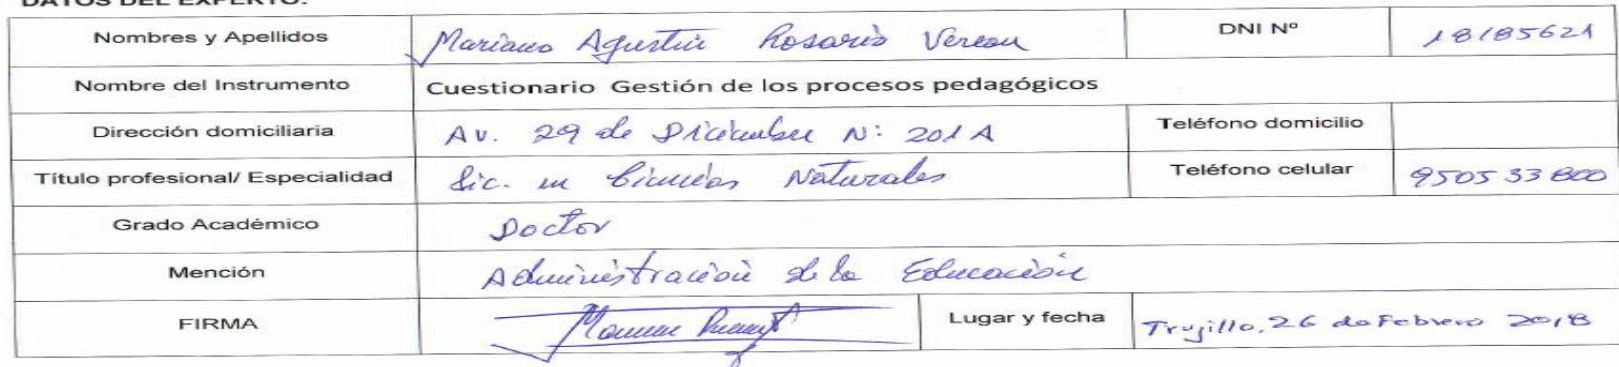 DATOS DEL EXPERTO:
Nombres y Apellidos Mariano Agustin Rosario Vereau DNI Nº 18185621
Nombre del Instrumento Cuestionario Gestión de los procesos pedagógicos
Dirección domiciliaria Av. 29 de Diciembre N: 201 A Teléfono domicilio
Título profesional/ Especialidad Lic. en Ciencias Naturales Teléfono celular 950533800
Grado Académico Doctor
Mención Administración de la Educación
FIRMA Lugar y fecha Trujillo, 26 de Febrero 2018